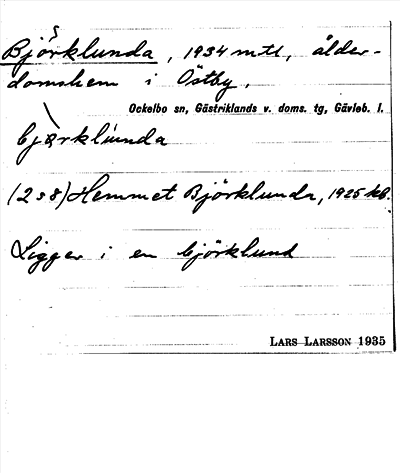 Björklunda, 1934 mtl, ålder-
domshem i Östby.
Ockelbo sn, Gästriklands v. doms. tg, Gävleb. l.
(2 s 8) Hemmet Björklunda, 1925 kb.
Ligger i en björklund
LARS LARSSON 1935